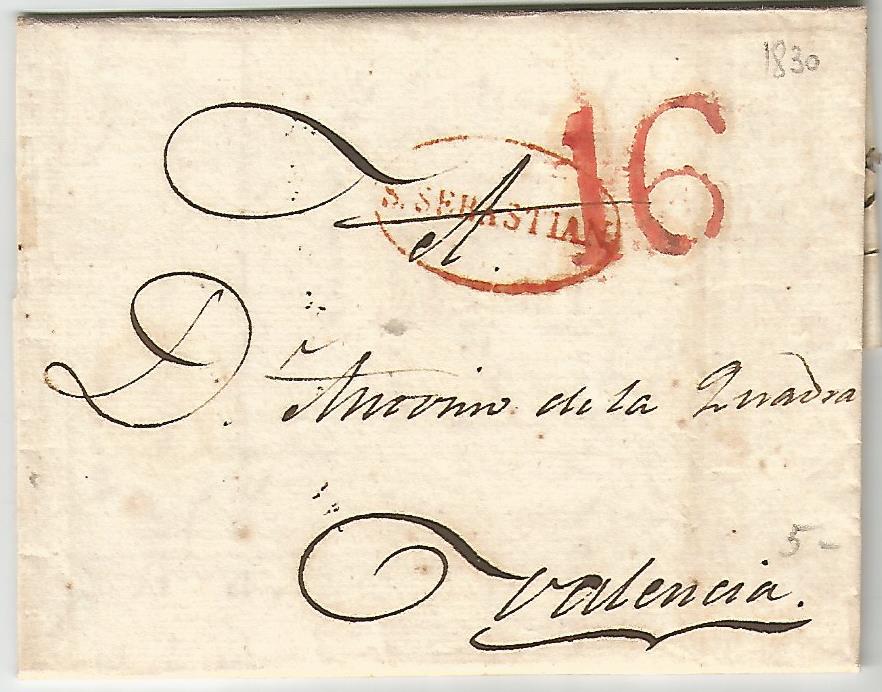 1830
16
S. SEBASTIAN
A.
D. Antonino de la Quadra
5-
Valencia.